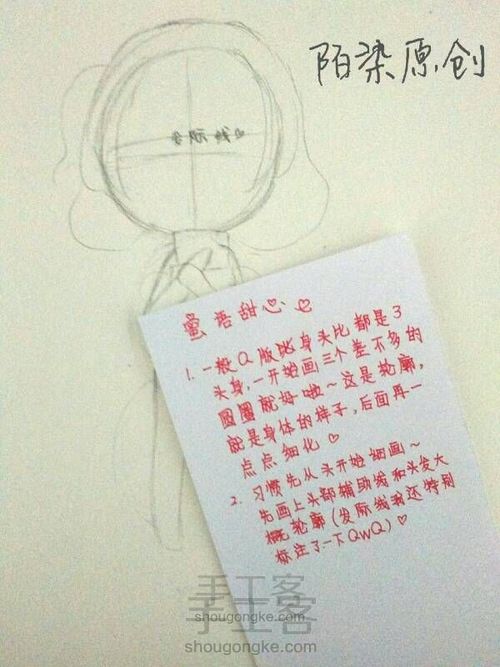 陌染原创
发际线
蜜语甜心♡
1. 一般Q版比身头比都是3
头身,一开始画三个差不多的
圆圈就好啦~这是轮廓,
就是身体的样子,后面再一
点点细化♡
2. 习惯先从头开始细画~
先画上头部辅助线和头发大
概轮廓(发际线我还特别
标注了一下QwQ)♡
手工客
shougongke.com
手工客
shougongke.com